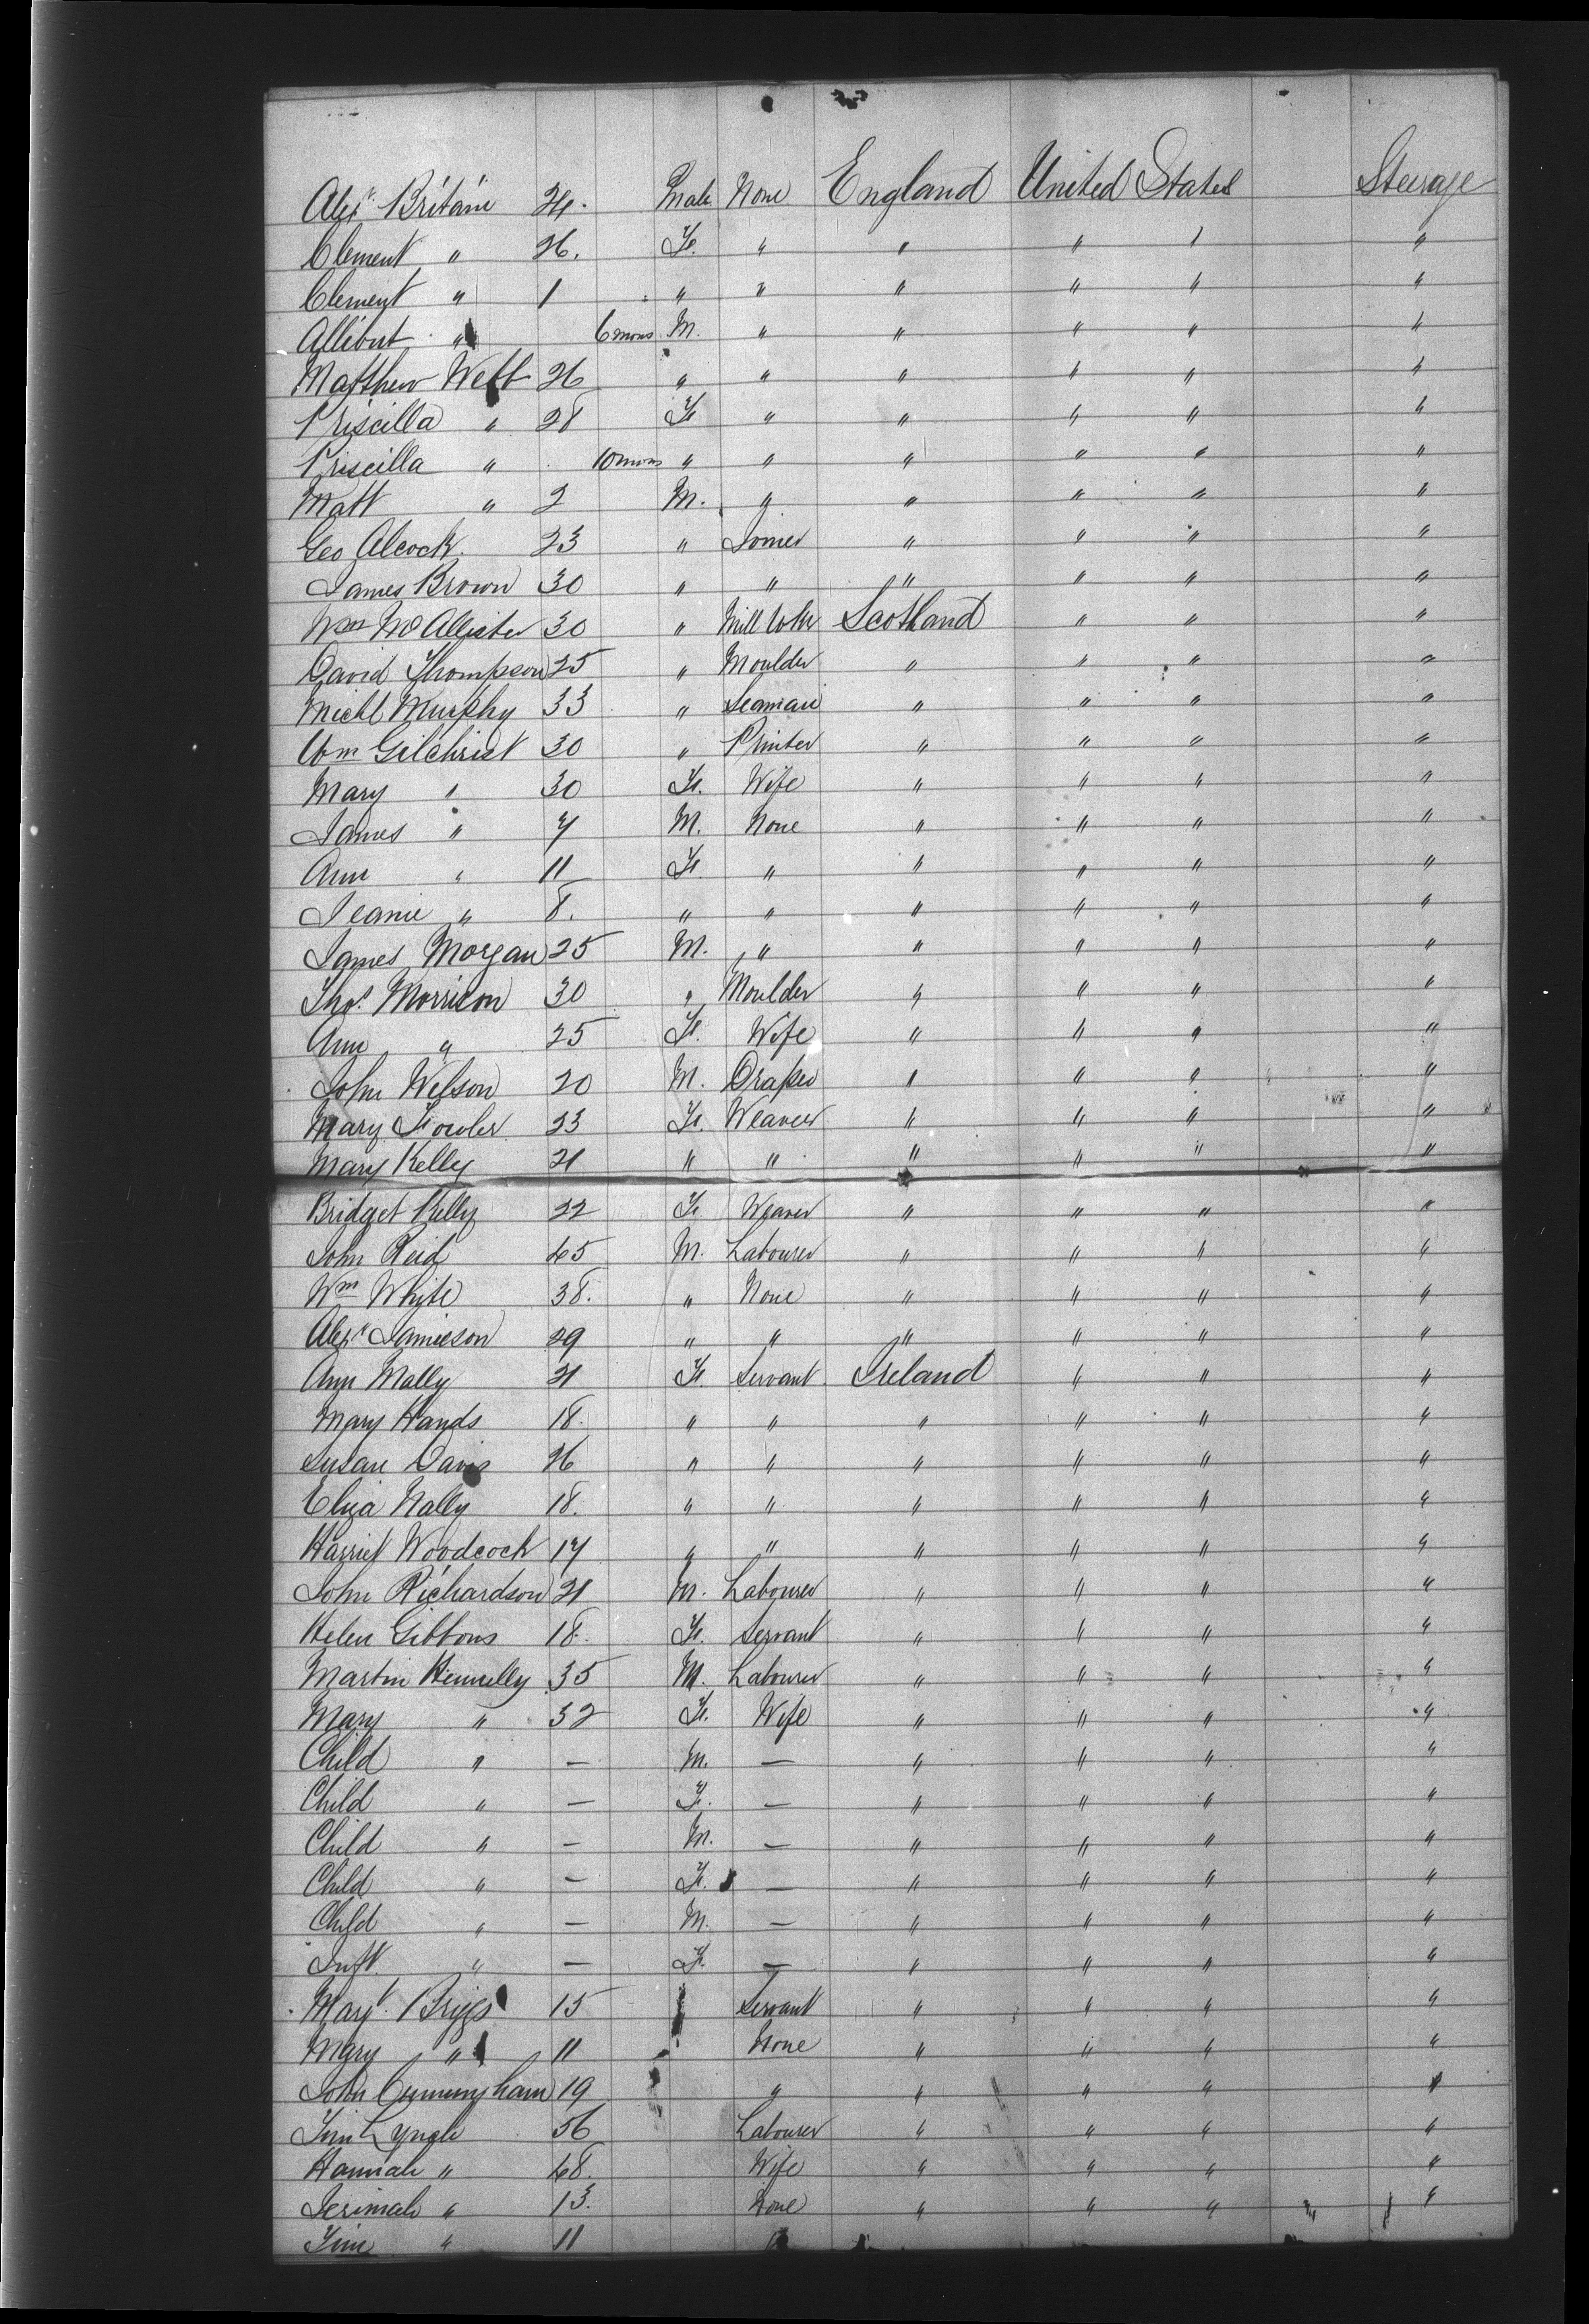 Alexr. Britain 24. Male None England United States Steerage
Clement " 26. Fe. " " " " "
Clement " 1 " " " " " "
Allibut " 6 mons M. " " " " "
Matthew Webb 26 " " " " " "
Priscilla " 28 Fe " " " " "
Priscilla " 10 mons " " " " " "
Matt " 2 M. " " " " "
Geo Alcock 23 " Joiner " " " "
James Brown 30 " " " " " "
Wm McAllister 30 " Mill Wkr Scotland " " "
David Thompson 25 " Moulder " " " "
Michl Murphy 33 " Seaman " " " "
Wm Gilchrist 30 " Printer " " " "
Mary " 30 Fe. Wife " " " "
James " 7 M. None " " " "
Ann " 11 Fe. " " " " "
Jeanie " 8. " " " " " "
James Morgan 25 M. " " " " "
Thos. Morrison 30 " Moulder " " " "
Ann " 25 Fe. Wife " " " "
John Wilson 20 M. Draper " " " "
Mary Fowler 23 Fe. Weaver " " " "
Mary Kelly 21 " " " " " "
Bridget Kelly 22 Fe Weaver " " " "
John Reid 45 M. Labourer " " " "
Wm White 38. " None " " " "
Alexr Jamieson 29 " " " " " "
Ann Mally 21 Fe Servant Ireland " " "
Mary Hands 18. " " " " " "
Susan Davis 26 " " " " " "
Eliza Nally 18. " " " " " "
Harriet Woodcock 17 " " " " " "
John Richardson 21 M. Labourer " " " "
Helen Gibbons 18. Fe. Servant " " " "
Martin Hennelly 35 M. Labourer " " " "
Mary " 32 Fe. Wife " " " "
Child " — M. — " " " "
Child " — Fe. — " " " "
Child " — M. — " " " "
Child " — Fe. — " " " "
Child " — M. — " " " "
Inft. " — Fe. — " " " "
Margt. Briggs 15 Servant " " " "
Mary " 11 None " " " "
John Cunningham 19 " " " " "
Tim Lynch 56 Labourer " " " "
Hannah " 48. Wife " " " "
Jerimah " 13. None " " " "
Tim " 11